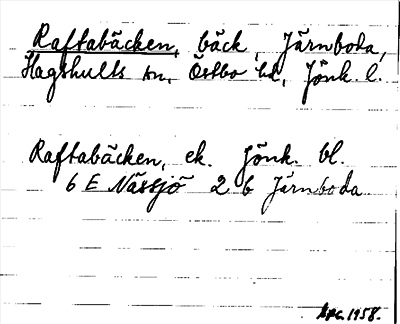 Raftabäcken, bäck, Järnboda,
Hagshults sn, Östbo hd, Jönk. l.
Raftabäcken, ek. Jönk. bl.
6 E Nässjö 2 b Järnboda
1958.